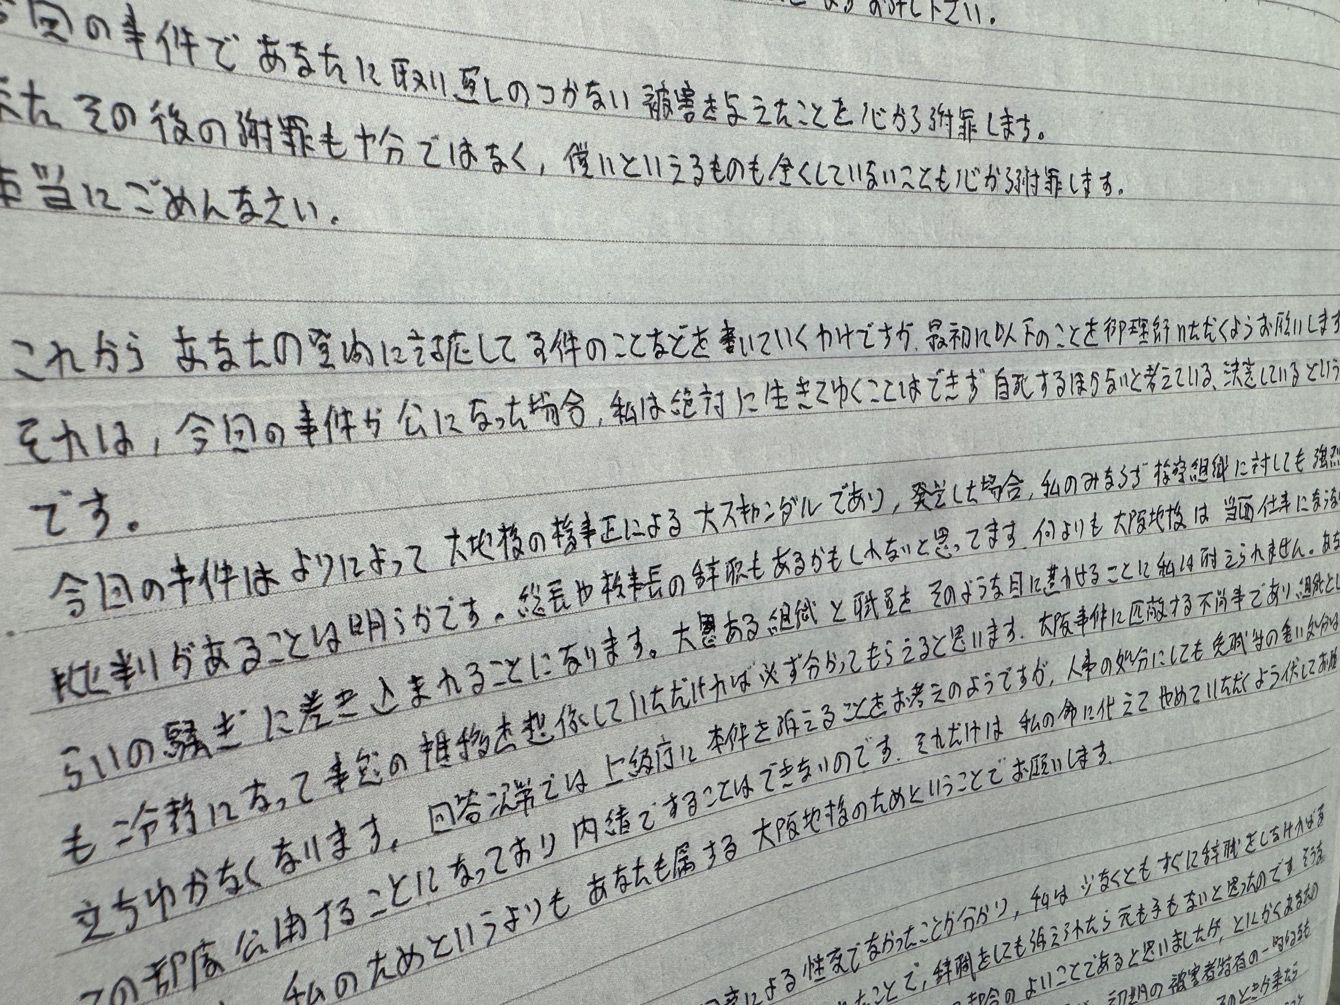 下さい。
今回の事件であなたに取り返しのつかない被害を与えたことを心から謝罪します。
また、その後の謝罪も十分ではなく、償いといえるものも全くしていないことも心から謝罪します。
本当にごめんなさい。
これから あなたの意向に対応して事件のことなどを書いていくわけですが、最初に以下のことを御理解いただくようお願いします
それは、今回の事件が公になった場合、私は絶対に生きてゆくことはできず 自死するほかないと考えている、決意しているという
です。
今回の事件は よりによって 大地検の検事正による 大スキャンダルであり、発覚した場合、私のみならず 検察組織に対しても 強烈
批判があることは明らかです。総長や検事長の辞職もあるかもしれないと思ってます。何よりも 大阪地検は 当面仕事にならな
らいの騒ぎに巻き込まれることになります。大恩ある組織と職員を そのような目に遭わせることに私は耐えられません。あな
も冷静になって事態の推移を想像していただければ必ず分かってもらえると思います。大阪事件に匹敵する不祥事であり 組織とし
立ちゆかなくなります。回答次第では 上級庁に 本件を訴えることをお考えのようですが、人事の処分にしても 免職等の重い処分は
その都度公開することになっており 内緒ですることはできないのです。それだけは 私の命に代えて やめていただくよう伏してお願
私のためというよりも あなたも属する 大阪地検のためということでお願いします。
による 性交でなかったことが分かり、私は 少なくとも すぐに辞職をしなければな
たことで、辞職をしても訴えられたら 元も子もないと思ったのです。そうな
都合のよいことであると思いましたが、とにかくあなたの
初期の 被害者特有の一時的な